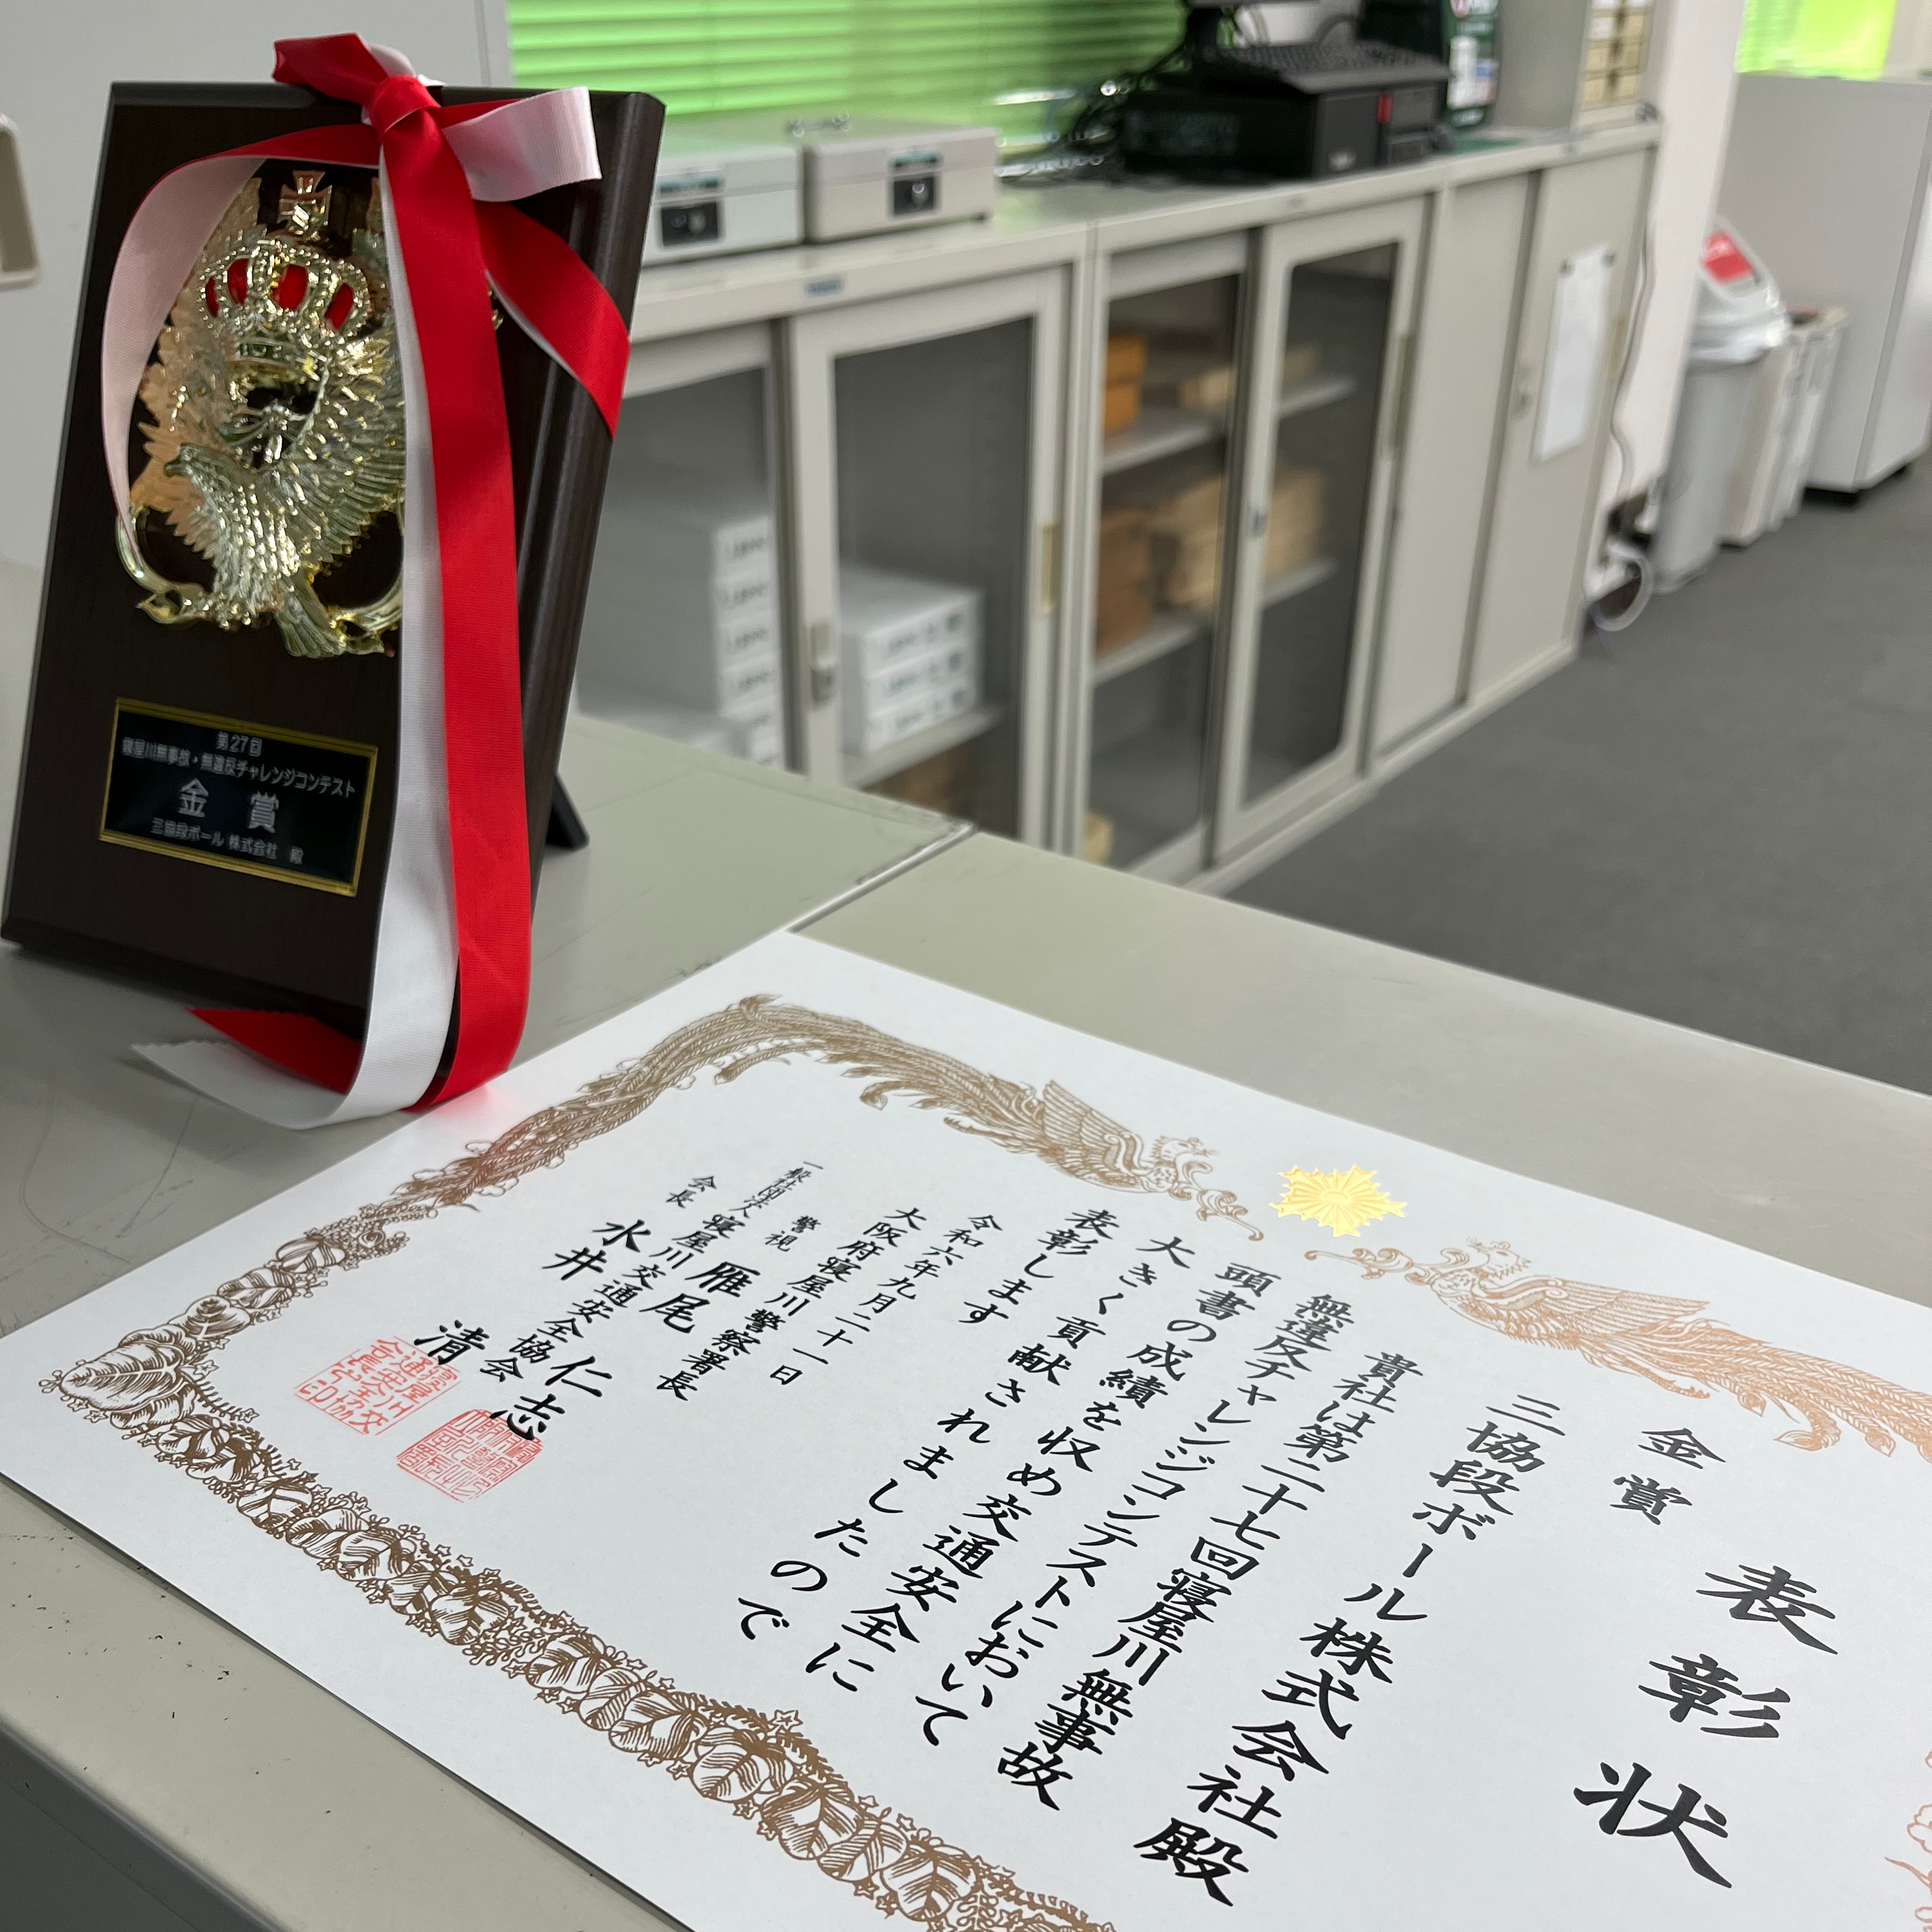 第27回
寝屋川無事故・無違反チャレンジコンテスト
金賞
三協段ボール 株式会社 殿
表彰状
金賞
三協段ボール株式会社殿
貴社は第二十七回寝屋川無事故
無違反チャレンジコンテストにおいて
頭書の成績を収め交通安全に
大きく貢献されましたので
表彰します
令和六年九月二十一日
大阪府寝屋川警察署長
警視 雁尾仁志
一般社団法人 寝屋川交通安全協会
会長 水井清